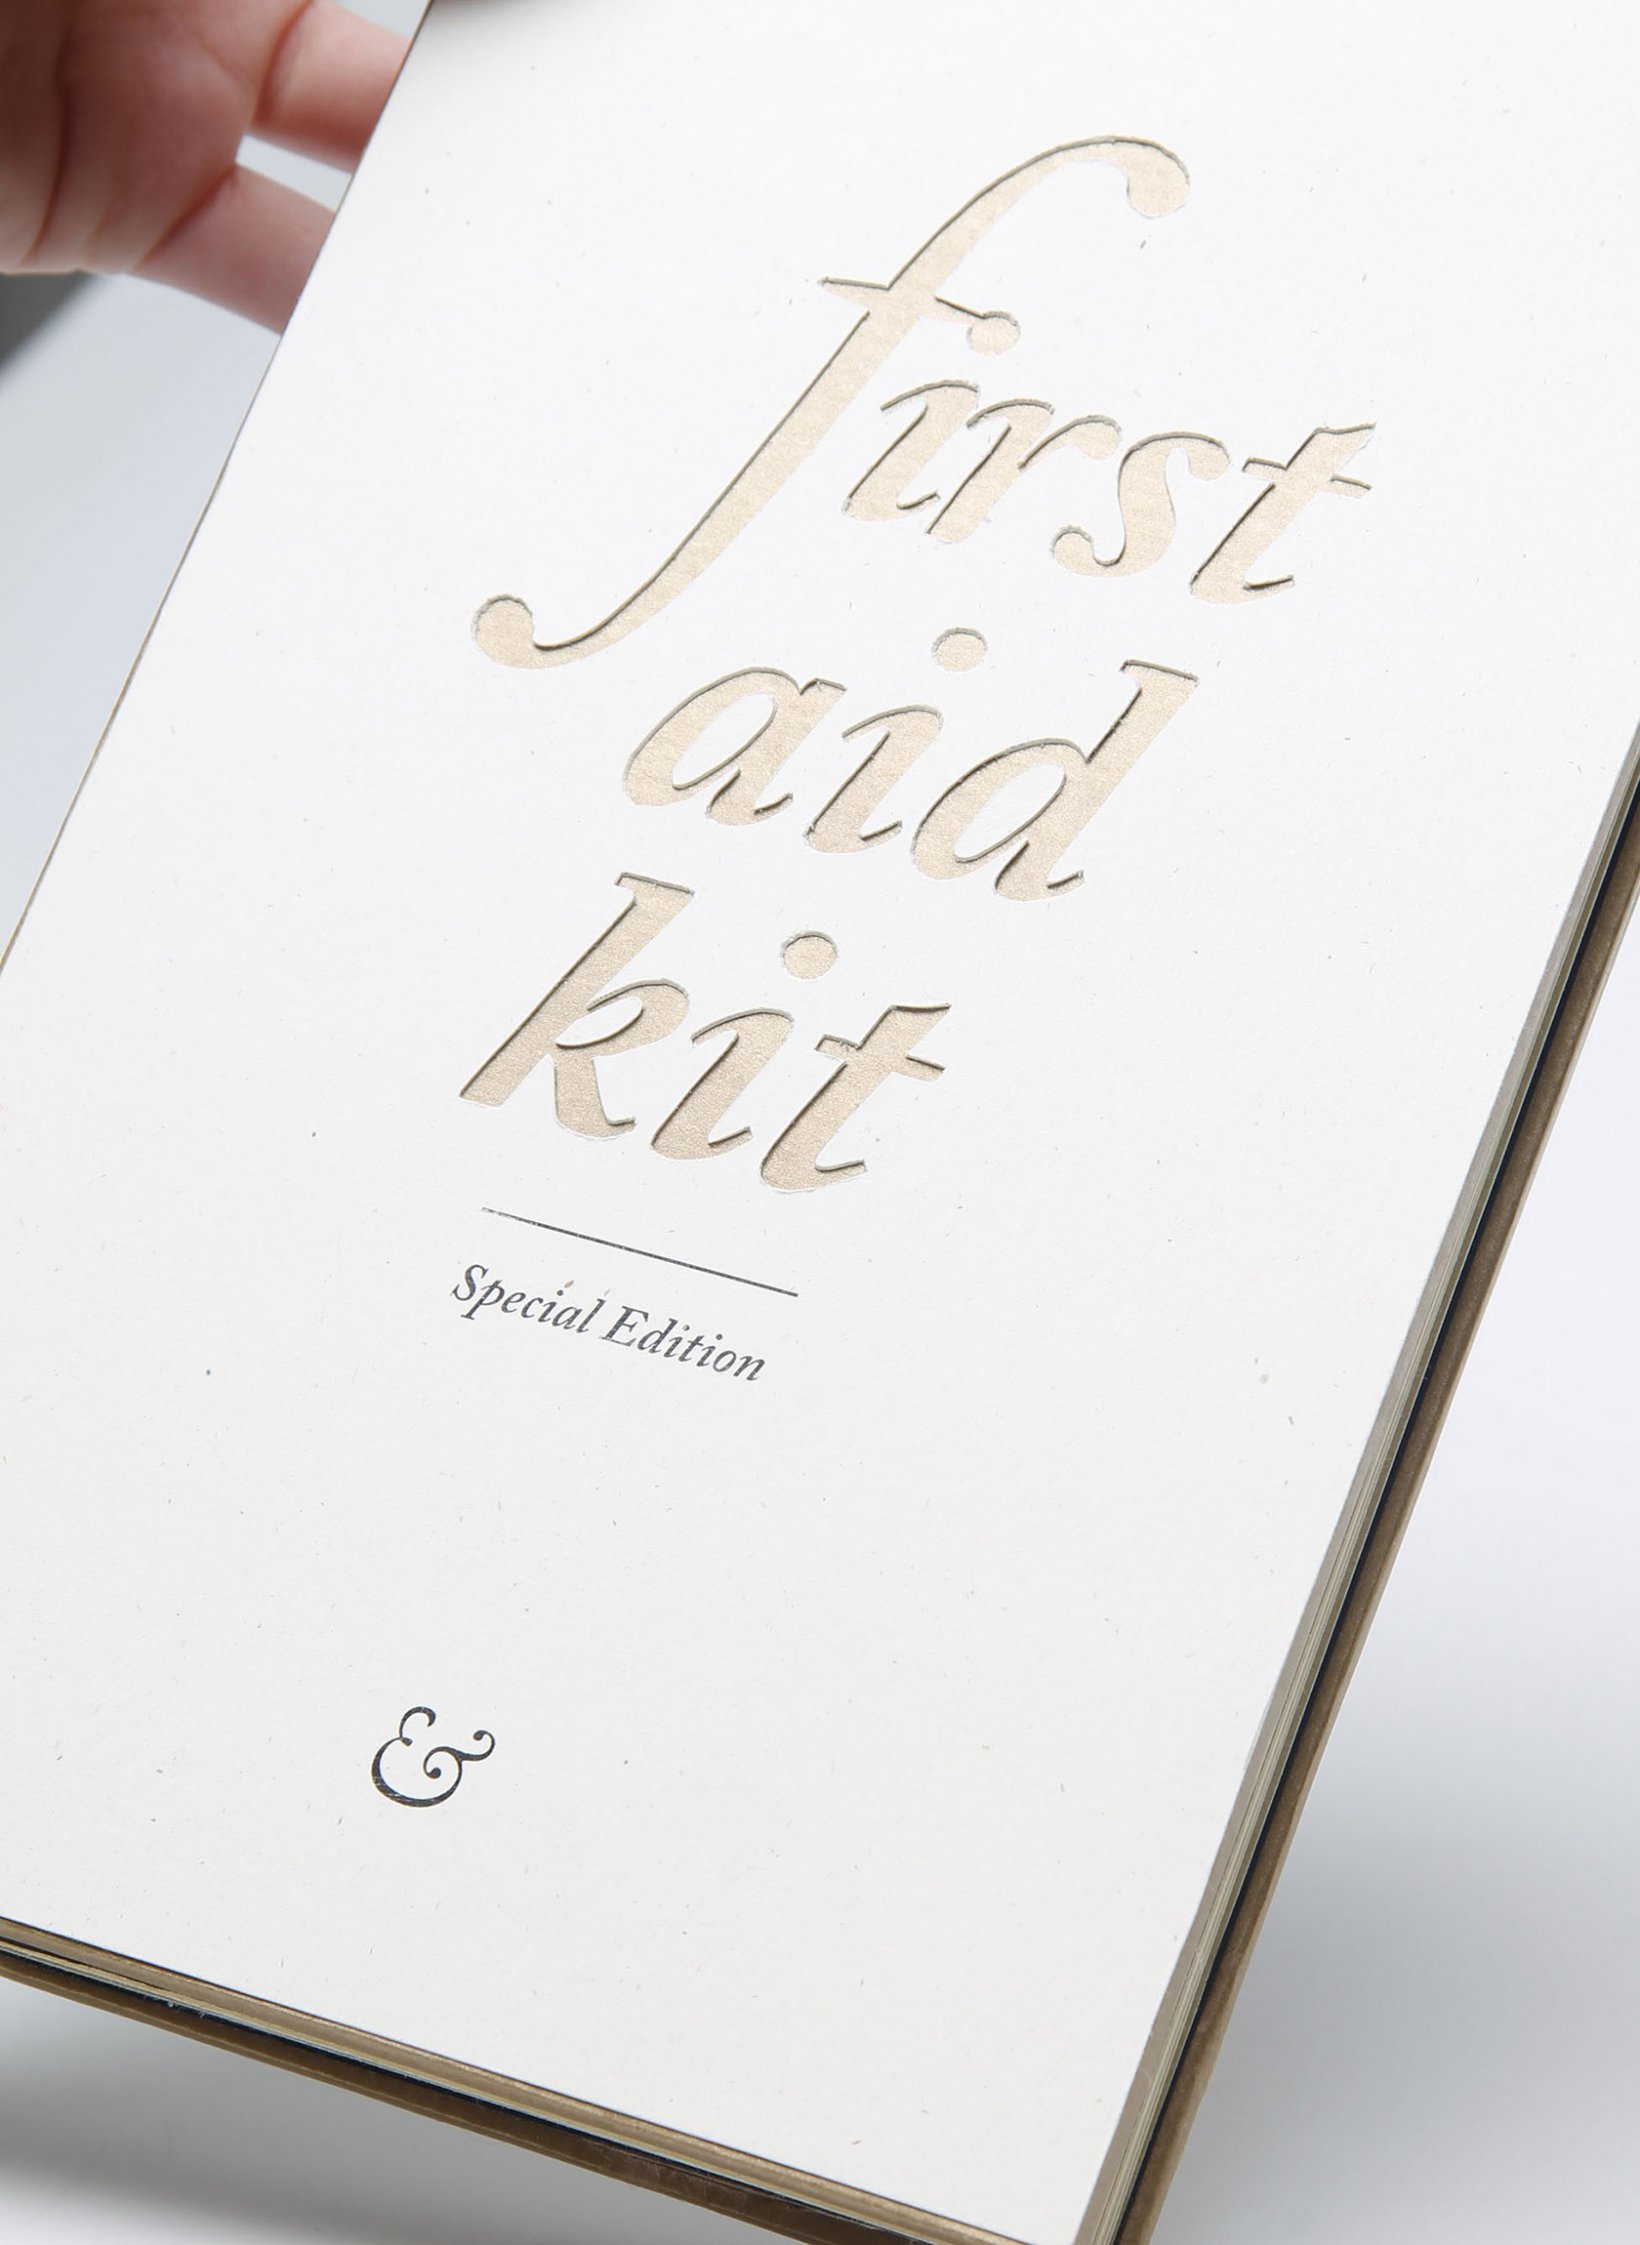 first
aid
kit
Special Edition
&